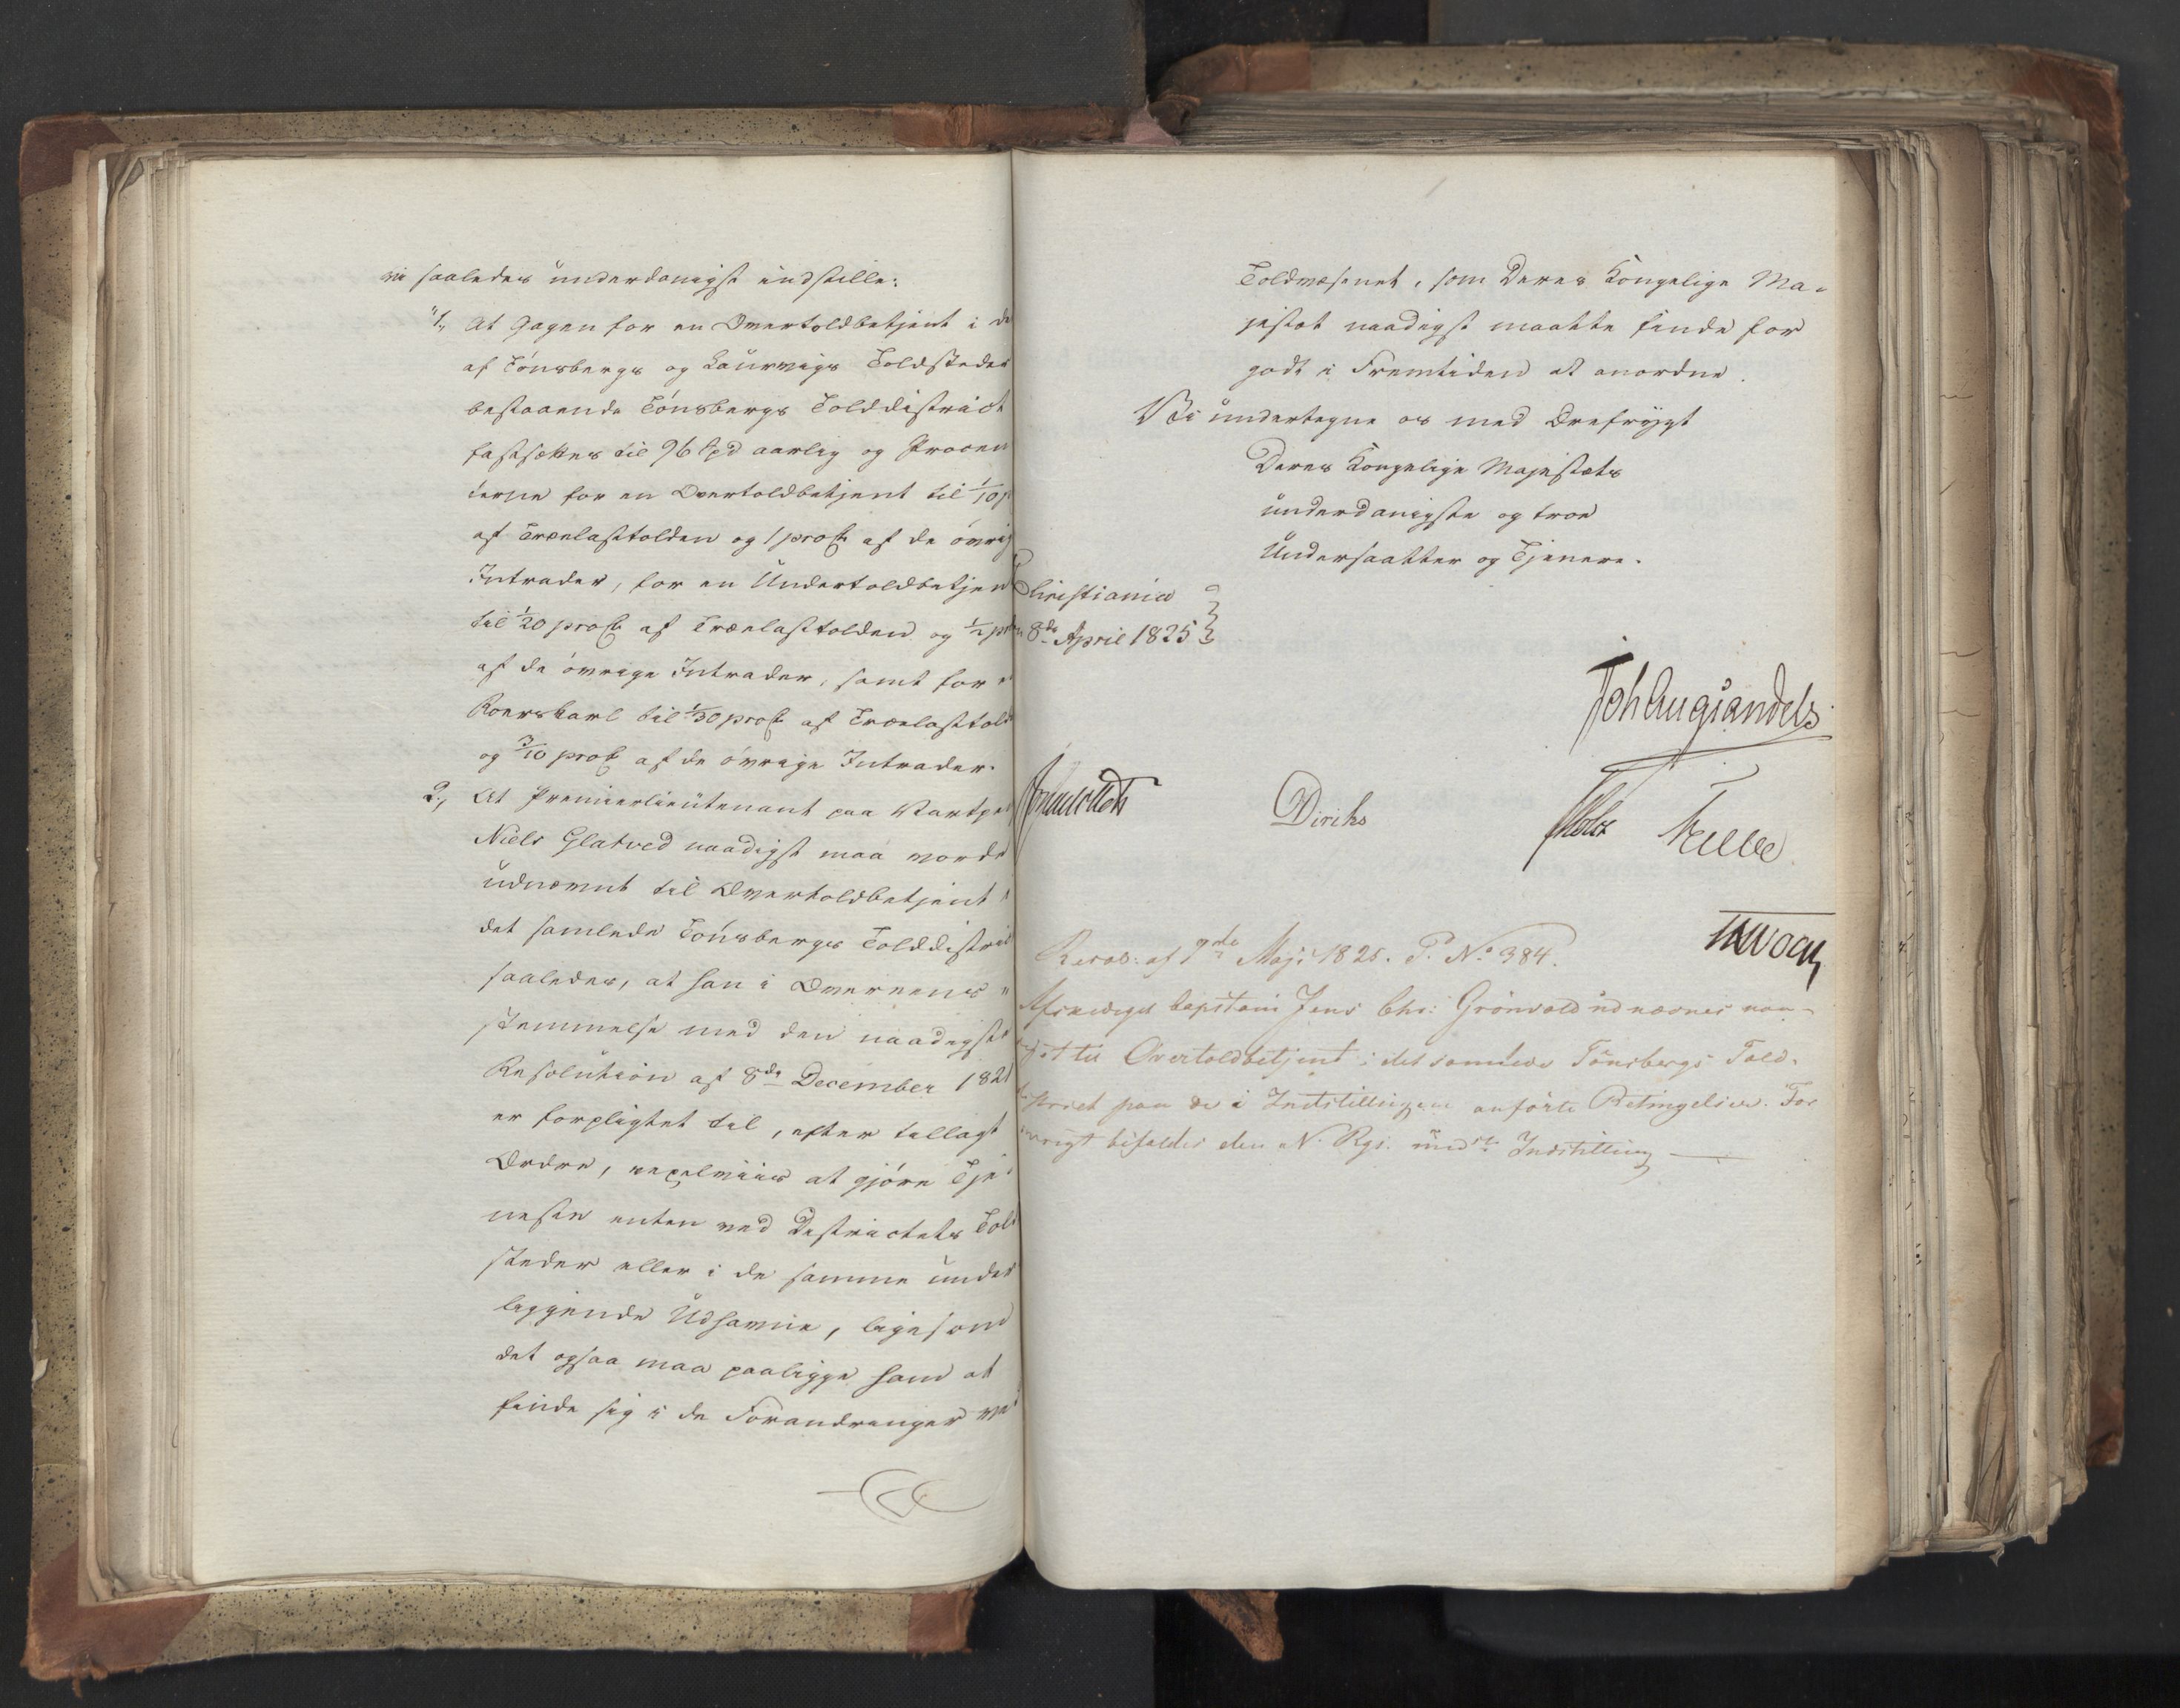 vi saaledes underdanigst indstille:
"1, At Gagen for en Overtoldbetjent i de
af Tönsbergs og Laurvigs Toldsteder
bestaaende Tönsbergs Tolddistrict
fastsættes til 96 Spd aarlig og Procen
terne for en Overtoldbetjent til 1/10 p
af Trælasttolden og 1 proCt af de övrig
Intrader, for en Undertoldbetjen
til 1/20 proCt af Trælasttolden og 1/2 pr
af de övrige Intrader, samt for e
Roerskarl til 1/30 proCt af Trælasttold
og 3/10 proCt af de övrige Intrader.
2, At Premierlieutenant paa Vartpe
Niels Glatved naadigst maa vorde
udnævnt til Overtoldbetjent i
det samlede Tönsbergs Tolddistric
saaledes, at han i Overeens
stemmelse med den naadigste
Resolution af 8de December 1821
er forpligtet til, efter tillagt
Ordre, vexelviis at gjöre Tje
neste enten ved Districtets Told
steder eller i de samme under
liggende Udhavne, ligesom
det ogsaa maa paaligge ham at
finde sig i de Forandringer ve
Toldvæsenet, som Deres Kongelige Ma-
jestæt naadigst maatte finde for
godt i Fremtiden at anordne.
Vi undertegne os med Ærefrygt
Deres Kongelige Majestæts
underdanigste og troe
Undersaatter og Tjenere.
Christiania
8de April 1825
Joh Aug Sandels
Collett
Diriks
Holst
Fasting
Resol: af 7de Maji 1825. P. No 384.
Afskediget Capitain Jens Chr: Grönvold udnævnes naa-
digst til Overtoldbetjent i det samlede Tönsbergs Told-
district paa de i Indstillingen anförte Betingelser. For
övrigt bifaldes den N. Rgs. undste Indstilling